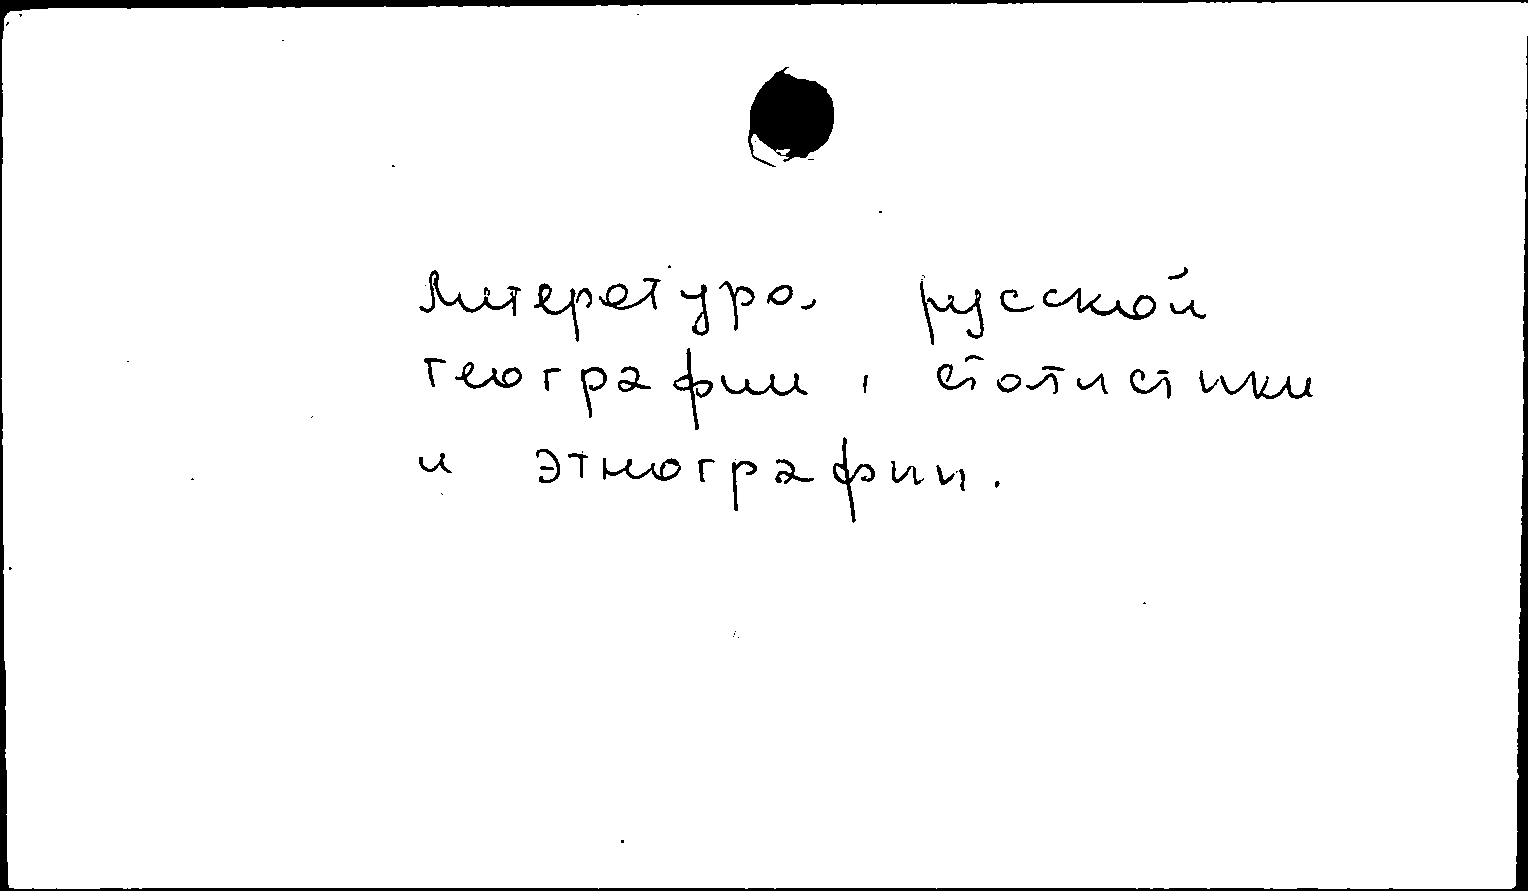 Литература русской
географии, статистики
и этнографии.